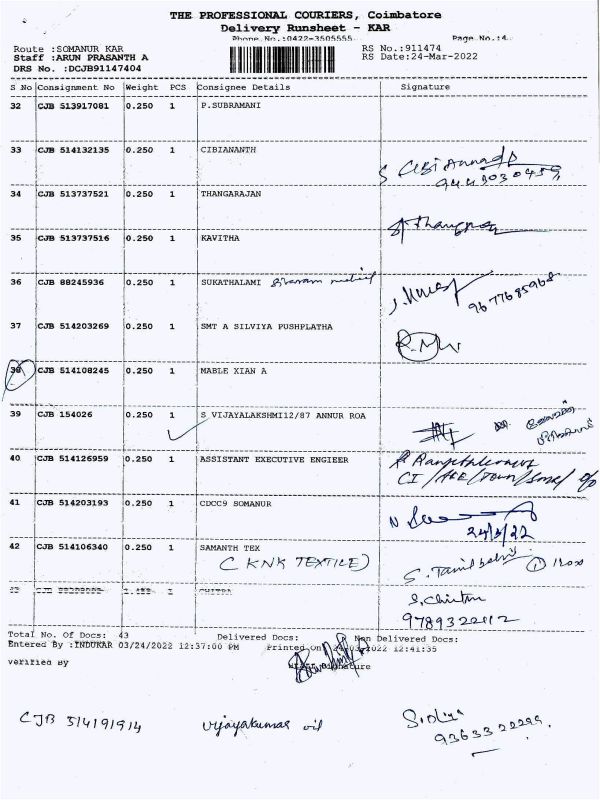 THE PROFESSIONAL COURIERS, Coimbatore
Delivery Runsheet - KAR
Phone No.:0422-3505555 Page No.:4
Route :SOMANUR KAR RS No.:911474
Staff :ARUN PRASANTH A RS Date:24-Mar-2022
DRS No. :DCJB91147404
S No Consignment No Weight PCS Consignee Details Signature
32 CJB 513917081 0.250 1 P.SUBRAMANI
33 CJB 514132135 0.250 1 CIBIANANTH
34 CJB 513737521 0.250 1 THANGARAJAN
35 CJB 513737516 0.250 1 KAVITHA
36 CJB 88245936 0.250 1 SUKATHALAMI
9677685968
37 CJB 514203269 0.250 1 SMT A SILVIYA PUSHPLATHA
38 CJB 514108245 0.250 1 MABLE XIAN A
39 CJB 154026 0.250 1 S VIJAYALAKSHMI12/87 ANNUR ROA
40 CJB 514126959 0.250 1 ASSISTANT EXECUTIVE ENGIEER
41 CJB 514203193 0.250 1 CDCC9 SOMANUR
24/3/22
42 CJB 514106340 0.250 1 SAMANTH TEK
(KNK TEXTILE)
43 CHITRA
9789322112
Total No. Of Docs: 43 Delivered Docs: Non Delivered Docs:
Entered By :INDUKAR 03/24/2022 12:37:00 PM Printed on 24-03-2022 12:41:35
verified by Signature
CJB 514191914 vijayakumar oil
9363322299